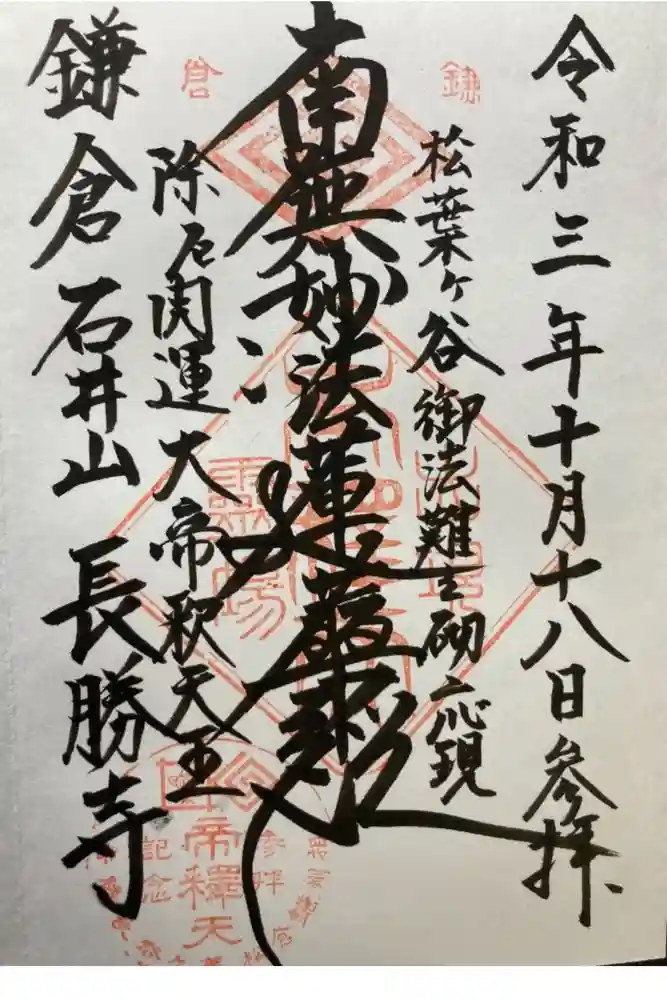 令和三年十月十八日参拝
松葉ヶ谷御法難之砌ニ応現
南無妙法蓮華経
除厄開運大帝釈天王
鎌倉石井山 長勝寺
鎌
倉
霊場
帝釋天
参拝
記念